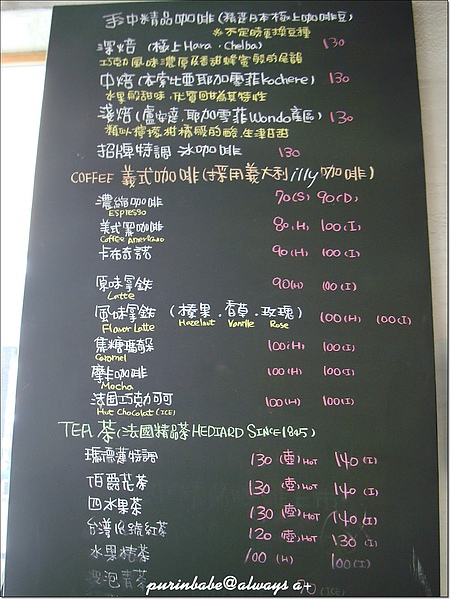 手中精品咖啡(精選日本極上咖啡豆)
※不定時更換豆種
深焙 (極上Hara、Chelba) 130
巧克力風味濃厚及香甜蜂蜜般的尾韻
中焙(衣索比亞耶加雪菲Kochere) 130
水果般甜味,
淺焙(盧安達,耶加雪菲Wondo產區) 130
類似檸檬柑橘般的酸,生津甘甜
招牌特調 冰咖啡 130
COFFEE 義式咖啡(採用義大利illy咖啡)
濃縮咖啡 70(S) 90(D)
Espresso
美式黑咖啡 80(H) 100(I)
Coffee Americano
卡布奇諾 90(H) 100(I)
原味拿鐵 90(H) 100(I)
Latte
風味拿鐵 (榛果.香草.玫瑰) 100(H) 100(I)
Flavor Latte Hazelnut Vanille Rose
焦糖瑪奇朵 100(H) 100(I)
Caramel
摩卡咖啡 100(H) 100(I)
Mocha
法國巧克力可可 100(H) 100(I)
Hot Chocolat(ICE)
TEA 茶(法國精品茶HEDIARD SINCE1845)
瑪德蓮特調 130(壺)HOT 140(I)
伯爵花茶 130(壺)HOT 140(I)
四水果茶 130(壺)HOT 140(I)
台灣18號紅茶 120(壺)HOT 130(I)
水果桔茶 100(H) 100(I)
泡青茶 (ICE)
purinbabe@always a+